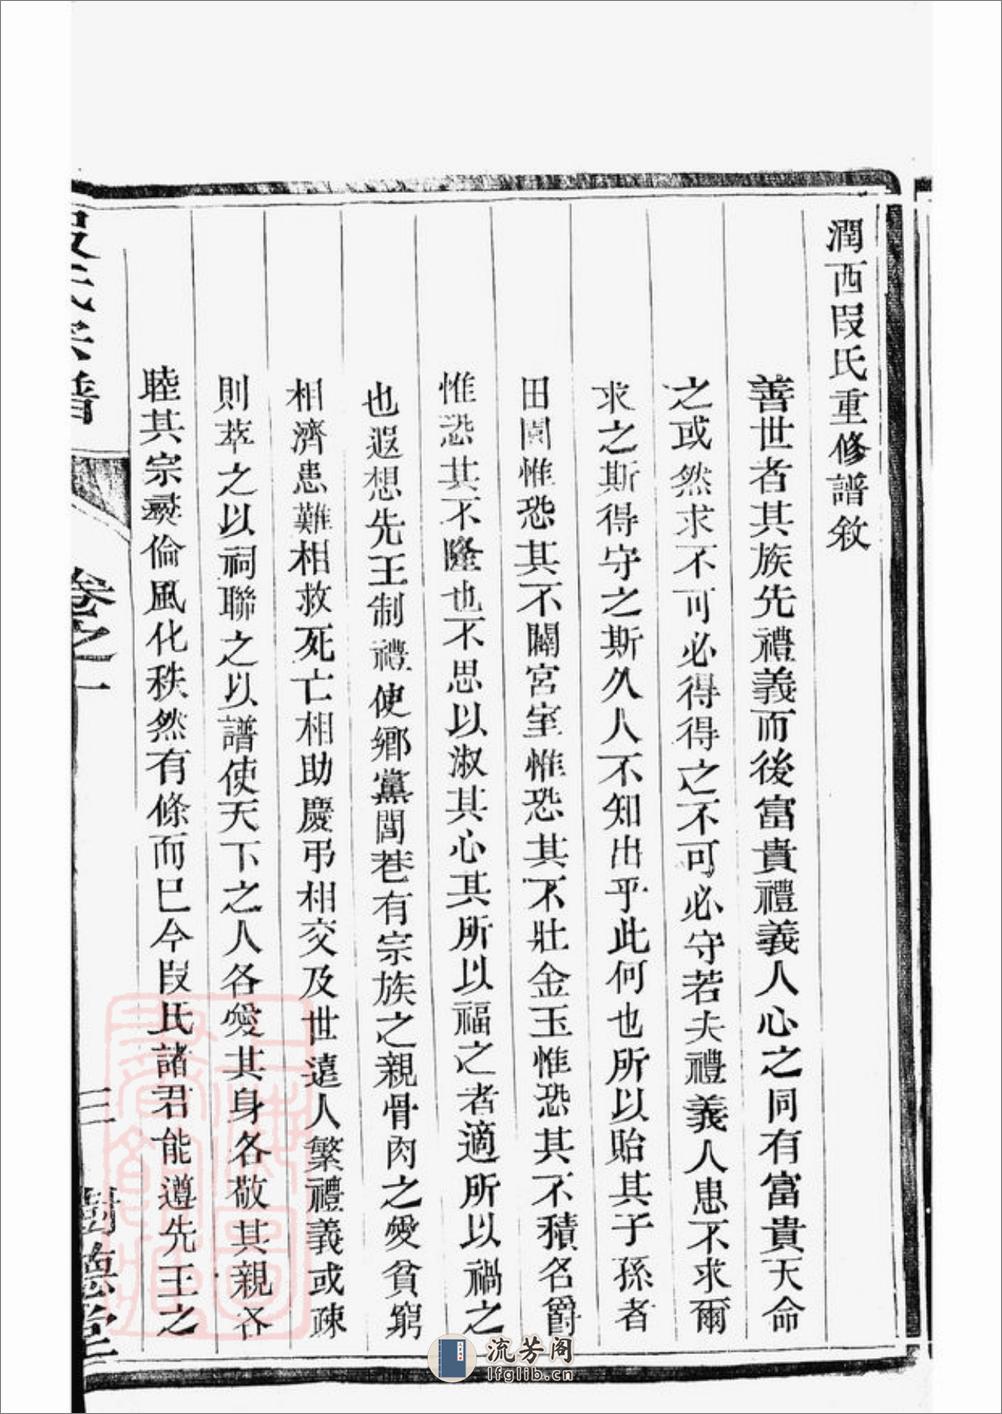 潤西段氏重修譜敘
善世者其族先禮義而後富貴禮義人心之同有富貴天命
之或然求不可必得得之不可必守若夫禮義人患不求爾
求之斯得守之斯久人不知出乎此何也所以貽其子孫者
田園惟恐其不闢宮室惟恐其不壯金玉惟恐其不積名爵
惟恐其不隆也不思以淑其心其所以福之者適所以禍之
也遐想先王制禮使鄉黨閭巷有宗族之親骨肉之愛貧窮
相濟患難相救死亡相助慶弔相交及世遠人繁禮義或疎
則萃之以祠聯之以譜使天下之人各愛其身各敬其親各
睦其宗彜倫風化秩然有條而已今段氏諸君能遵先王之
段氏宗譜
卷之一
三
樹德堂
上海圖書館藏
流芳阁
lfglib.cn